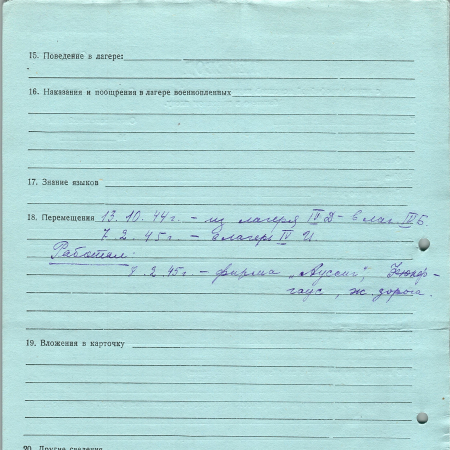 15. Поведение в лагере:
16. Наказания и поощрения в лагере военнопленных
17. Знание языков
18. Перемещения 13.10.44г. – из лагеря IV Д – в лаг. IV Б
7.2.45г. – в лагерь IV И
Работал:
7.2.45г. – фирма „Ауссиг",
гаус, ж. дорога.
19. Вложения в карточку
20. Другие сведения